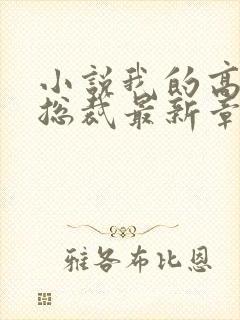 小说我的高
总裁最新章
雅各布比恩